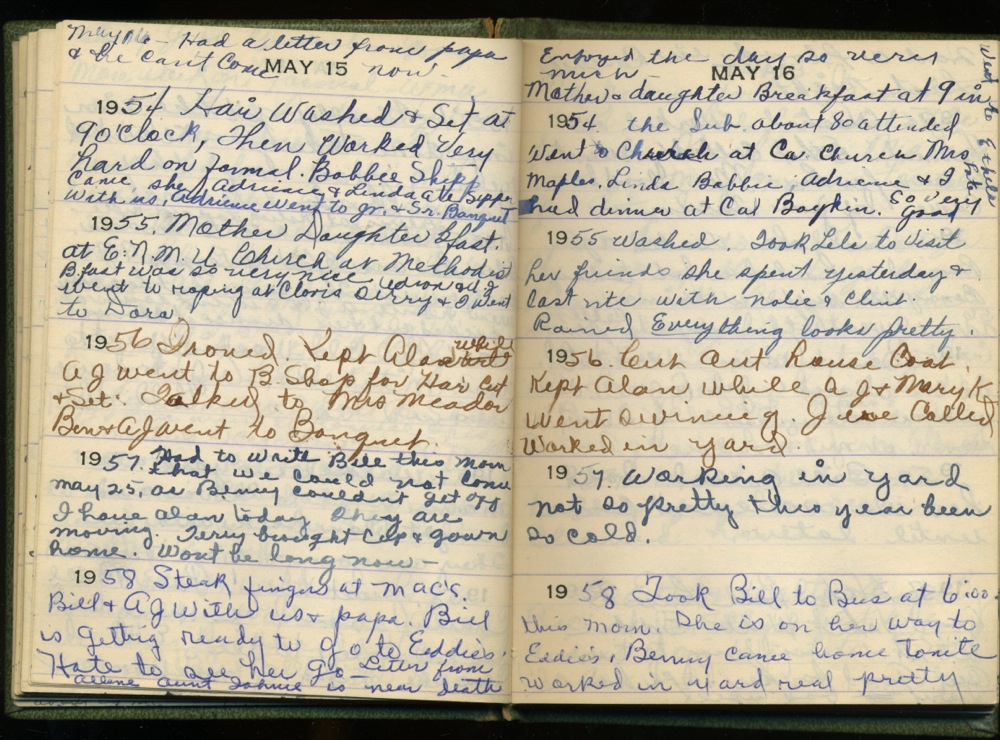 Had a letter from papa
& he can't come now
MAY 15
1954. Hair Washed & Set at
9 O'Clock, Then Worked Very
hard on formal. Bobbie Shipp
came, she, Adriene & Linda ate Supper
With us, Adriene went to Jr. & Sr. Banquet
1955. Mother Daughter Bfast.
at E.N.M.U. Church at Methodist
Bfast was so very nice
went to roping at Clovis Jerry & I went
to Dora.
1956 Ironed. Kept Alan while
AJ went to B. Shop for Hair Cut
& Set. Talked to Mrs Meador
Ben & AJ went to Banquet.
1957. Had to write Bill this morn
that we could not come
May 25, as Benny couldn't get off
I have Alan today they are
moving. Terry brought Cap & gown
home. Wont be long now —
1958 Steak fingers at Mac's.
Bill & AJ with us & papa. Bill
is gettig ready to go to Eddie's.
Hate to see her go — Letter from
aunt Johnie is near death
Enjoyed the day so very
much —
MAY 16
Mother & daughter Breakfast at 9 in
1954. the Sub. about 80 attended
Went to Church at Ca. Church Mrs
Maples, Linda Bobbie, Adriene & I
had dinner at Cal Boykin. So very
good
Went to
1955 Washed. Took Lela to visit
her friends she spent yesterday &
last nite with Nolie & Clint.
Rained Everything looks pretty.
1956. Cut out house Coat.
Kept Alan while AJ & Mary K
went swiming. June Called
Worked in yard.
1957. Working in yard
not so pretty this year been
so cold.
1958 Took Bill to Bus at 6:00.
this morn. She is on her way to
Eddie's, Benny came home tonite
worked in yard real pretty